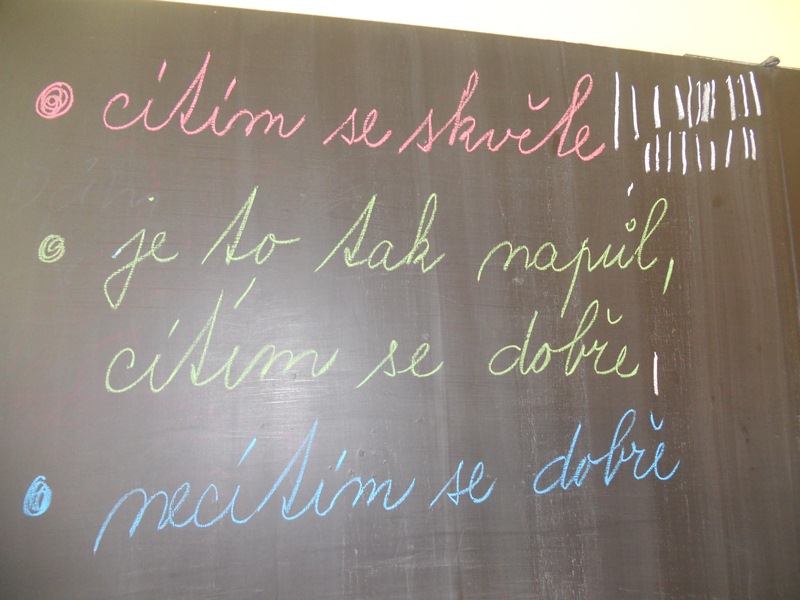 cítím se skvěle
je to tak napůl,
cítím se dobře
necítím se dobře